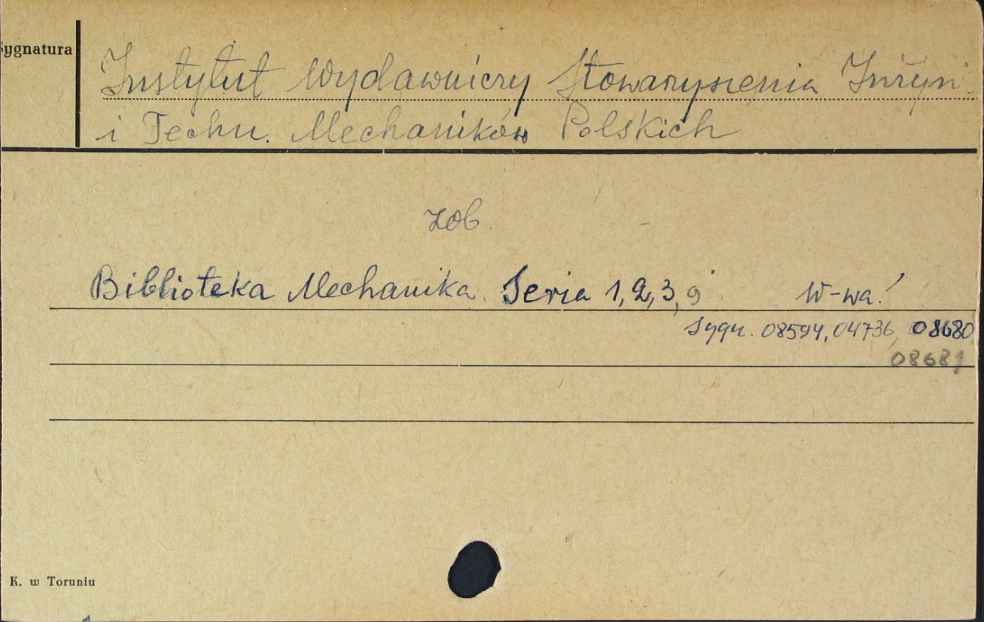 Sygnatura
Instytut Wydawniczy Stowarzyszenia Inżyn.
i Techn. Mechaników Polskich
zob.
Biblioteka Mechanika. Seria 1,2,3,9 W-wa.
Sygn. 08594, 04736, 08680
08681
K. w Toruniu